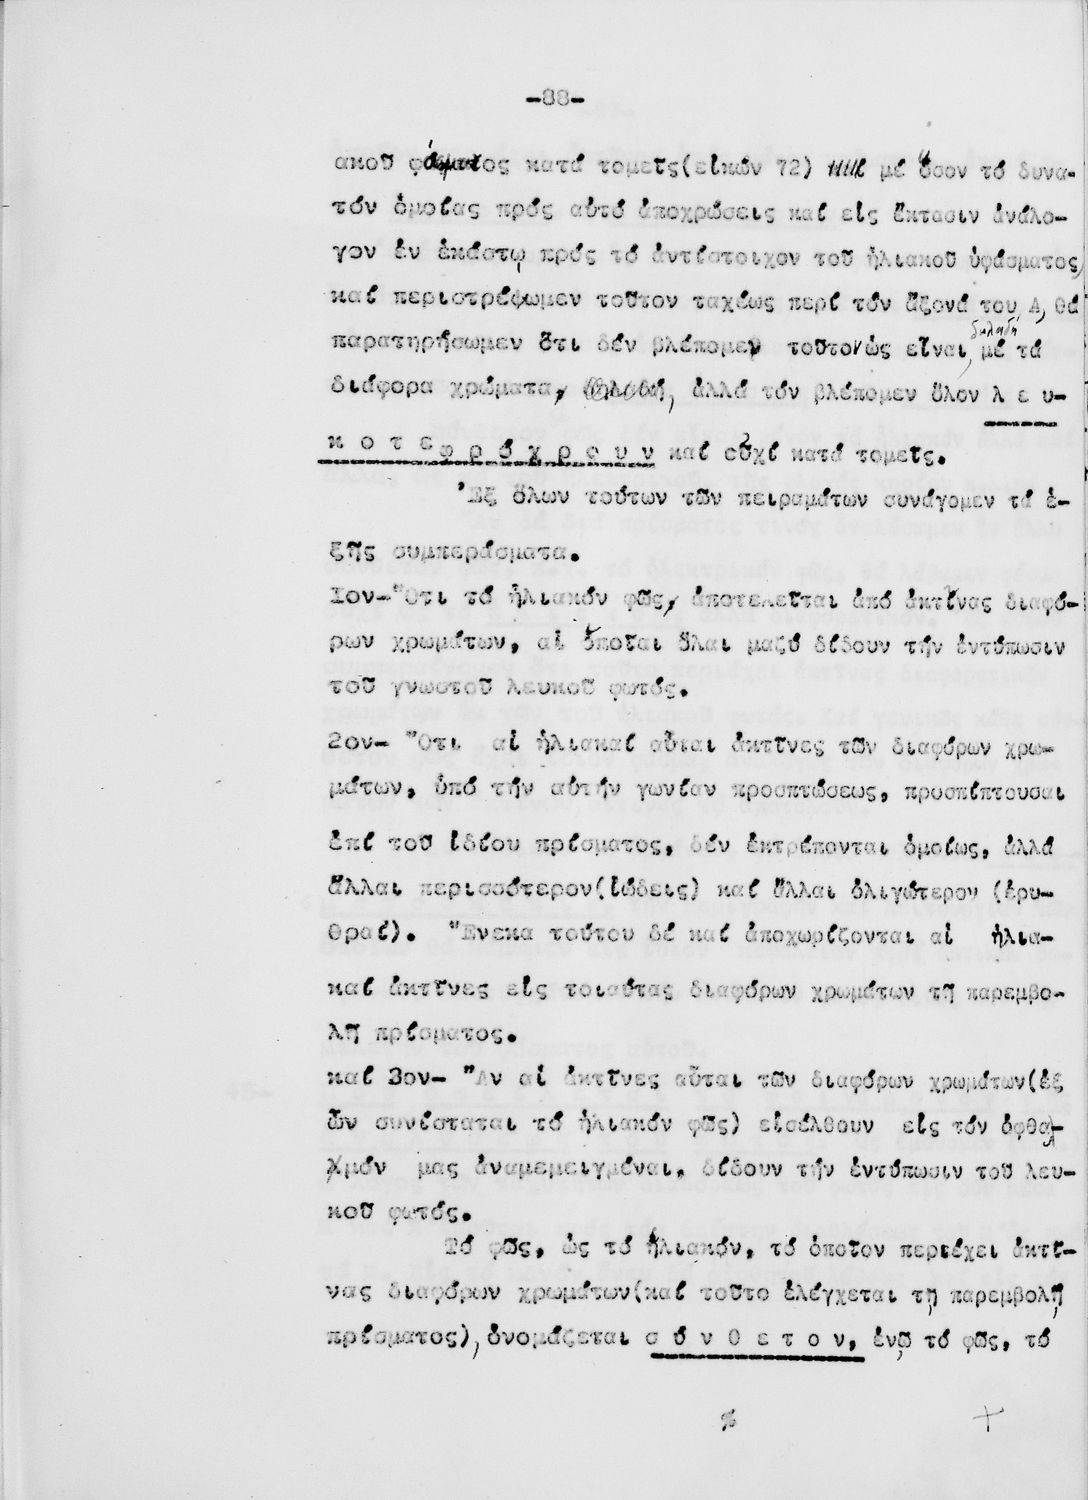 -88-
ακοῦ φάσματος κατά τομεῖς(εἰκών 72) μέ ὅσον τό δυνα-
τόν ὁμοίας πρός αὐτό ἀποχρώσεις καί εἰς ἔκτασιν ἀνάλο-
γον ἐν ἑκάστῳ πρός τό ἀντίστοιχον τοῦ ἡλιακοῦ ὑφάσματος,
καί περιστρέψωμεν τοῦτον ταχέως περί τόν ἄξονά του Α, θά
παρατηρήσωμεν ὅτι δέν βλέπομεν τοῦτον ὡς εἶναι, δηλαδή μέ τά
διάφορα χρώματα, ἀλλά τόν βλέπομεν ὅλον λ ε υ-
κ ο τ ε φ ρ ό χ ρ ο υ ν καί οὐχί κατά τομεῖς.
Ἐξ ὅλων τούτων τῶν πειραμάτων συνάγομεν τά ἑ-
ξῆς συμπεράσματα.
1ον-Ὅτι τό ἡλιακόν φῶς, ἀποτελεῖται ἀπό ἀκτῖνας διαφό-
ρων χρωμάτων, αἱ ὁποῖαι ὅλαι μαζύ δίδουν τήν ἐντύπωσιν
τοῦ γνωστοῦ λευκοῦ φωτός.
2ον- Ὅτι αἱ ἡλιακαί αὗται ἀκτῖνες τῶν διαφόρων χρω-
μάτων, ὑπό τήν αὐτήν γωνίαν προσπτώσεως, προσπίπτουσαι
ἐπί τοῦ ἰδίου πρίσματος, δέν ἐκτρέπονται ὁμοίως, ἀλλά
ἄλλαι περισσότερον(ἰώδεις) καί ἄλλαι ὀλιγώτερον (ἐρυ-
θραί). Ἕνεκα τούτου δέ καί ἀποχωρίζονται αἱ ἡλια-
καί ἀκτῖνες εἰς τοιαύτας διαφόρων χρωμάτων τῇ παρεμβο-
λῇ πρίσματος.
καί 3ον- Ἄν αἱ ἀκτῖνες αὗται τῶν διαφόρων χρωμάτων(ἐξ
ὧν συνίσταται τό ἡλιακόν φῶς) εἰσέλθουν εἰς τόν ὀφθαλ-
μόν μας ἀναμεμειγμέναι, δίδουν τήν ἐντύπωσιν τοῦ λευ-
κοῦ φωτός.
Τό φῶς, ὡς τό ἡλιακόν, τό ὁποῖον περιέχει ἀκτῖ-
νας διαφόρων χρωμάτων(καί τοῦτο ἐλέγχεται τῇ παρεμβολῇ
πρίσματος), ὀνομάζεται σ ύ ν θ ε τ ο ν, ἐνῷ τό φῶς, τό
%
+